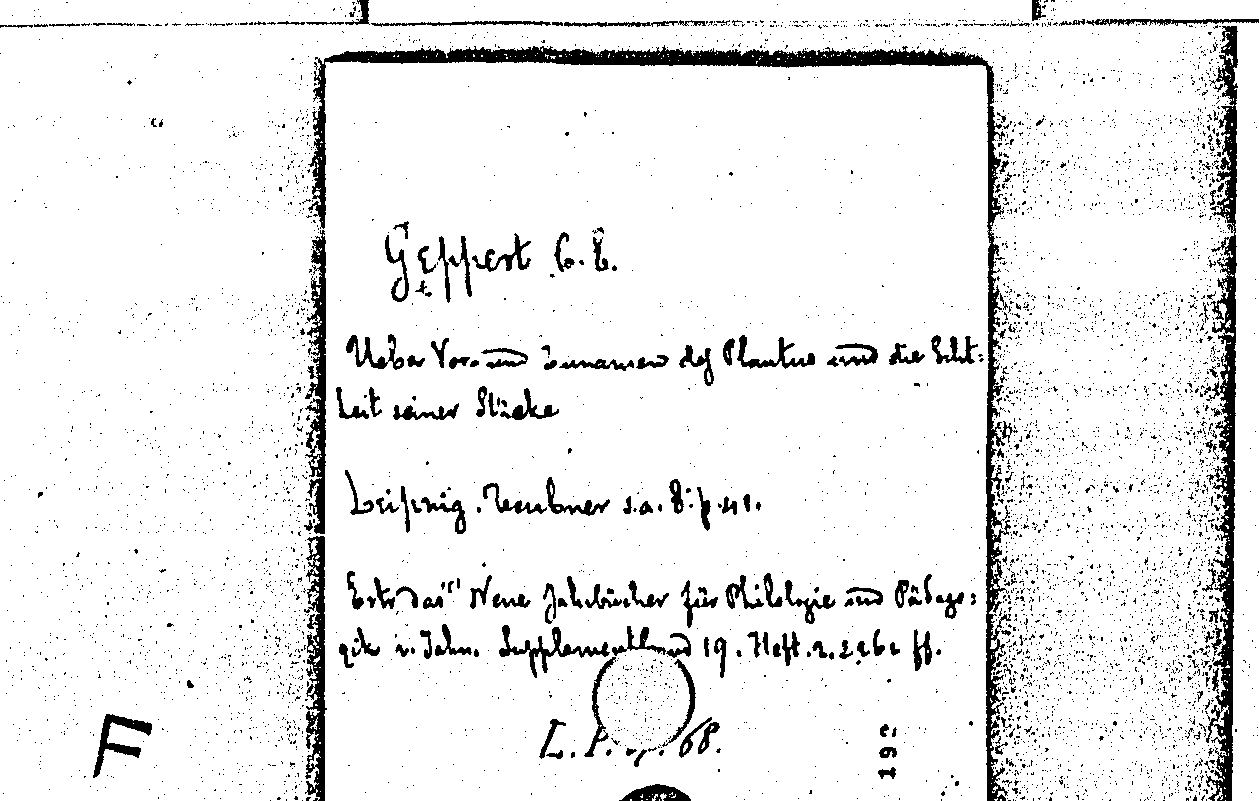 Geppert C. E.
Ueber Vor- und Zunamen des Plautus und die Echt-
heit seiner Stücke
Leipzig. Teubner s.a. 8° p.
Neue Jahrbücher für Philologie und Pädago-
gik v. Jahn. Supplementband 19. Heft. 2. ff.
L. P. 68.
19e
F